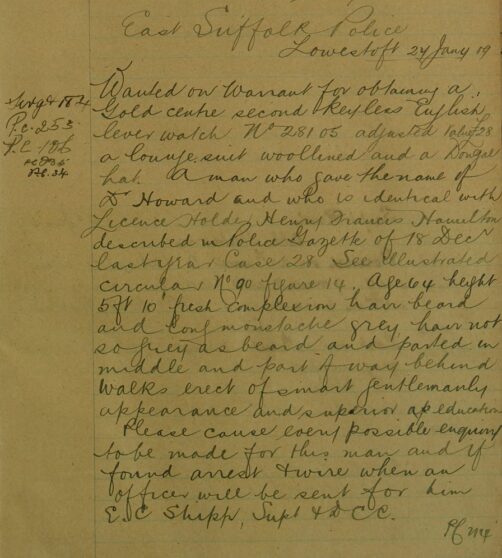 East Suffolk Police
Lowestoft 24 Jany 09
Wanted on Warrant for obtaining a
Gold centre second Keyless English
lever watch No 28105 adjusted
a lounge suit woollined and a Donegal
hat. A man who gave the name of
Dr Howard and who is identical with
Licence Holder Henry Francis Hamilton
described in Police Gazette of 18 Dec
last year Case 28. See Illustrated
circular No 90 figure 14. Age 64 height
5ft 10 fresh complexion hair beard
and long moustache grey, hair not
so grey as beard and parted in
middle and part way behind
walks erect of smart gentlemanly
appearance and superior education
Please cause every possible enquiry
to be made for this man and if
found arrest & wire when an
officer will be sent for him
E.C Shipp, Supt & D.C.C.
P.C. 253
P.C. 126